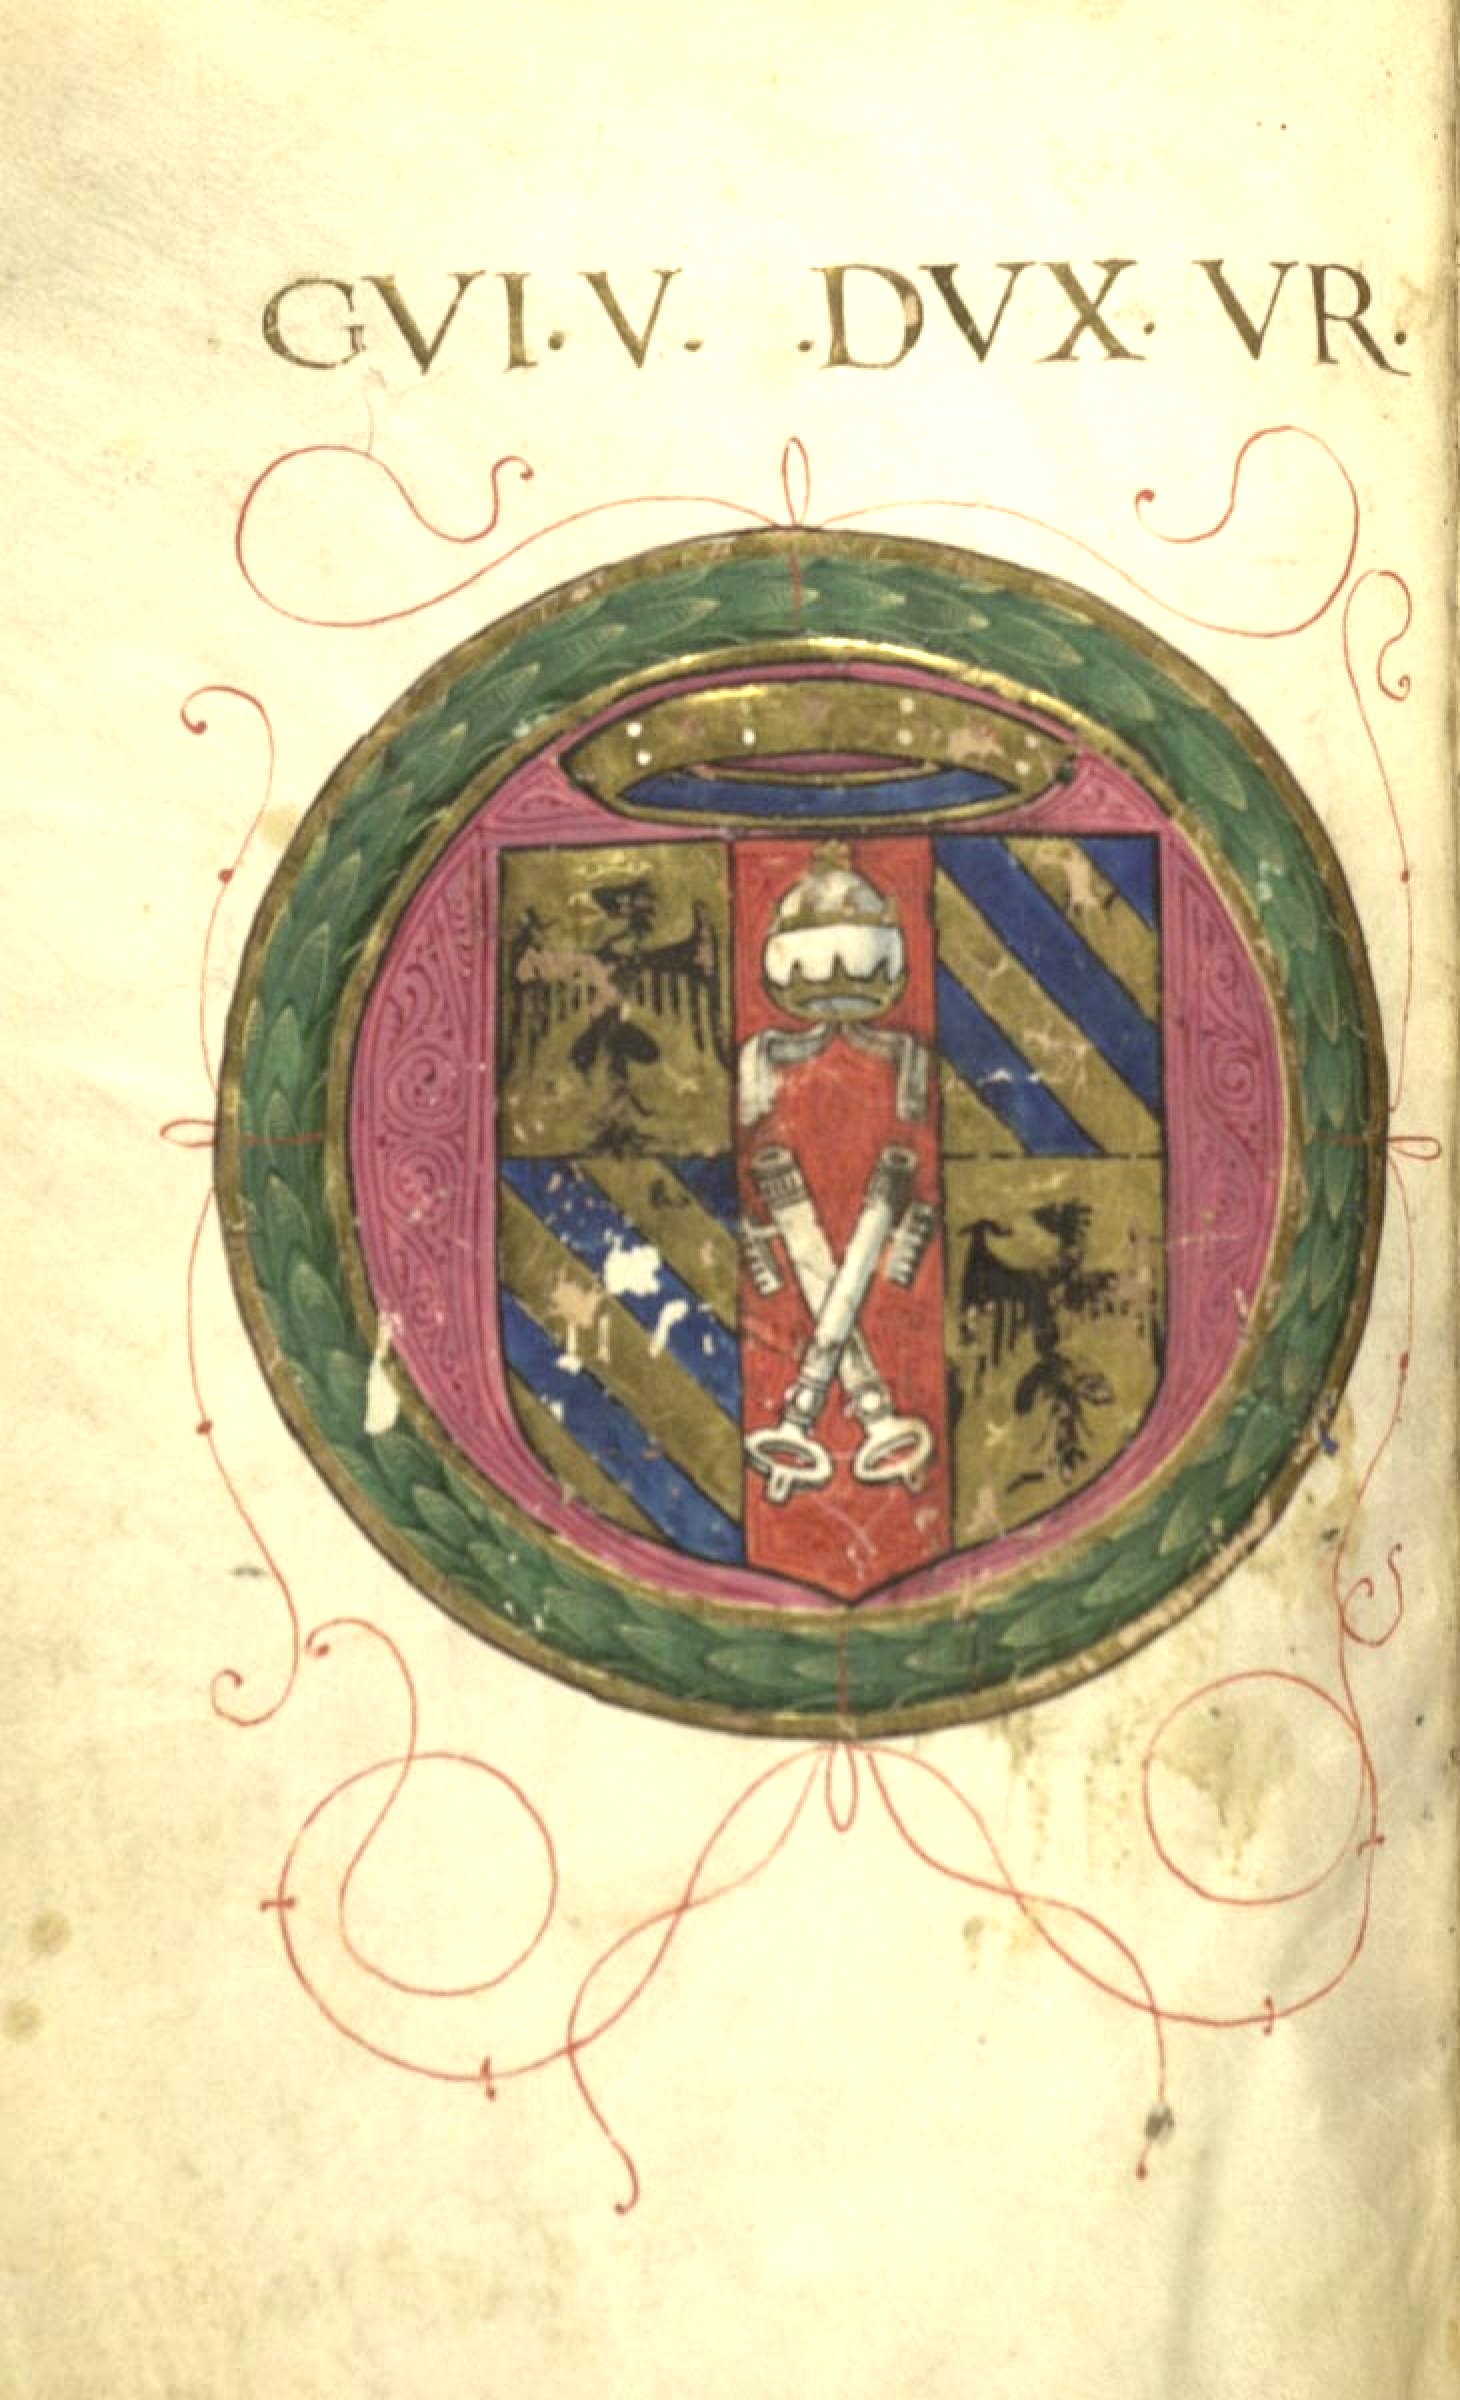 GVI. V. .DVX. VR.